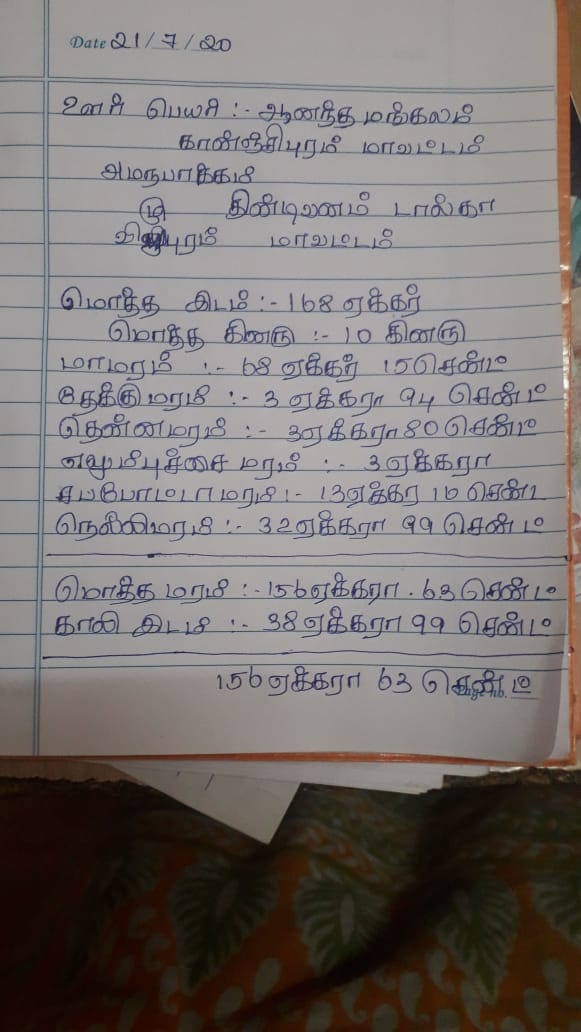 Date 21/7/20
ஊர் பெயர் :- ஆனந்த மங்கலம்
காஞ்சிபுரம் மாவட்டம்
திண்டிவனம் டால்கா
மாவட்டம்
மொத்த இடம் :- 168 ஏக்கர்
மொத்த கினறு :- 10 கினறு
மாமரம் :- 68 ஏக்கர் 15 சென்ட்
தேக்கு மரம் :- 3 ஏக்கரா 94 சென்ட்
தென்னமரம் :- 3 ஏக்கரா 80 சென்ட்
எலுமிபுச்சை மரம் :- 3 ஏக்கரா
சப்போட்டா மரம் :- 13 ஏக்கர 10 சென்ட்
நெல்லிமரம் :- 32 ஏக்கரா 99 சென்ட்
மொத்த மரம் :- 156 ஏக்கரா . 63 சென்ட்
காலி இடம் :- 38 ஏக்கரா 99 சென்ட்
156 ஏக்கரா 63 சென்ட்